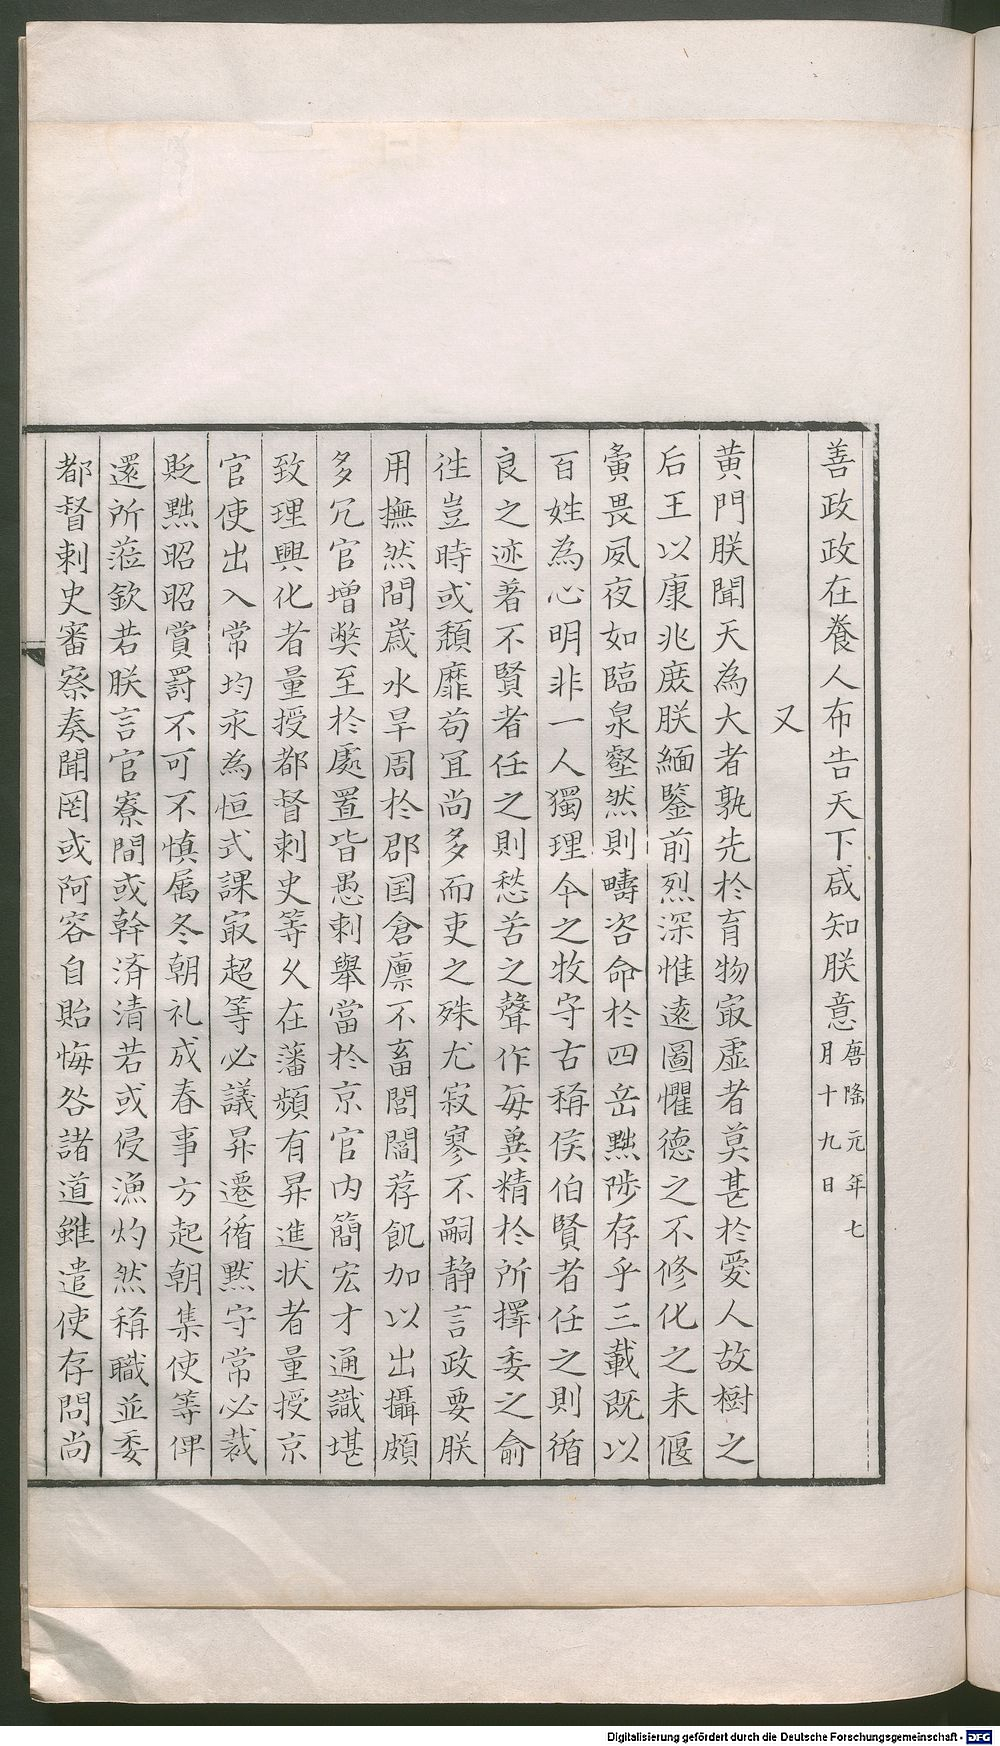 善政政在養人布告天下咸知朕意唐隆元年七月十九日
又
黄門朕聞天為大者孰先於育物㝡虚者莫甚於愛人故樹之
后王以康兆庻朕緬鑒前烈深惟遠圖懼德之不修化之未偃
夤畏夙夜如臨泉壑然則疇咨命於四岳黜陟存乎三載既以
百姓為心明非一人獨理今之牧守古稱侯伯賢者任之則循
良之迹著不賢者任之則愁苦之聲作毎兾精於所擇委之俞
徃豈時或頽靡苟冝尚多而吏之殊尤寂寥不嗣静言政要朕
用撫然間歳水旱周於郡国倉廪不畜閭閻荐飢加以出攝頗
多冗官増弊至於處置皆愚刺舉當於京官内簡宏才通識堪
致理興化者量授都督刺史等乆在藩頻有昇進状者量授京
官使出入常均永為恒式課㝡超等必議昇遷循黙守常必裁
貶黜昭昭賞罸不可不慎属冬朝礼成春事方起朝集使等俾
還所蒞欽若朕言官寮間或幹済清若或侵漁灼然稱職並委
都督刺史審察奏聞罔或阿容自貽悔咎諸道雖遣使存問尚
Digitalisierung gefördert durch die Deutsche Forschungsgemeinschaft - DFG